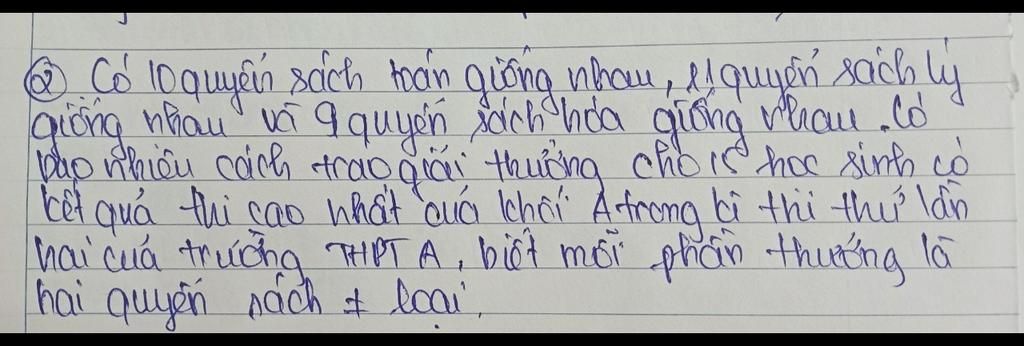 ② Có 10 quyển sách toán giống nhau, 11 quyển sách lý
giống nhau và 9 quyển sách hóa giống nhau. Có
bao nhiêu cách trao giải thưởng cho 15 học sinh có
kết quả thi cao nhất của khối A trong kì thi thử lần
hai của trường THPT A, biết mỗi phần thưởng là
hai quyển sách ≠ loại.